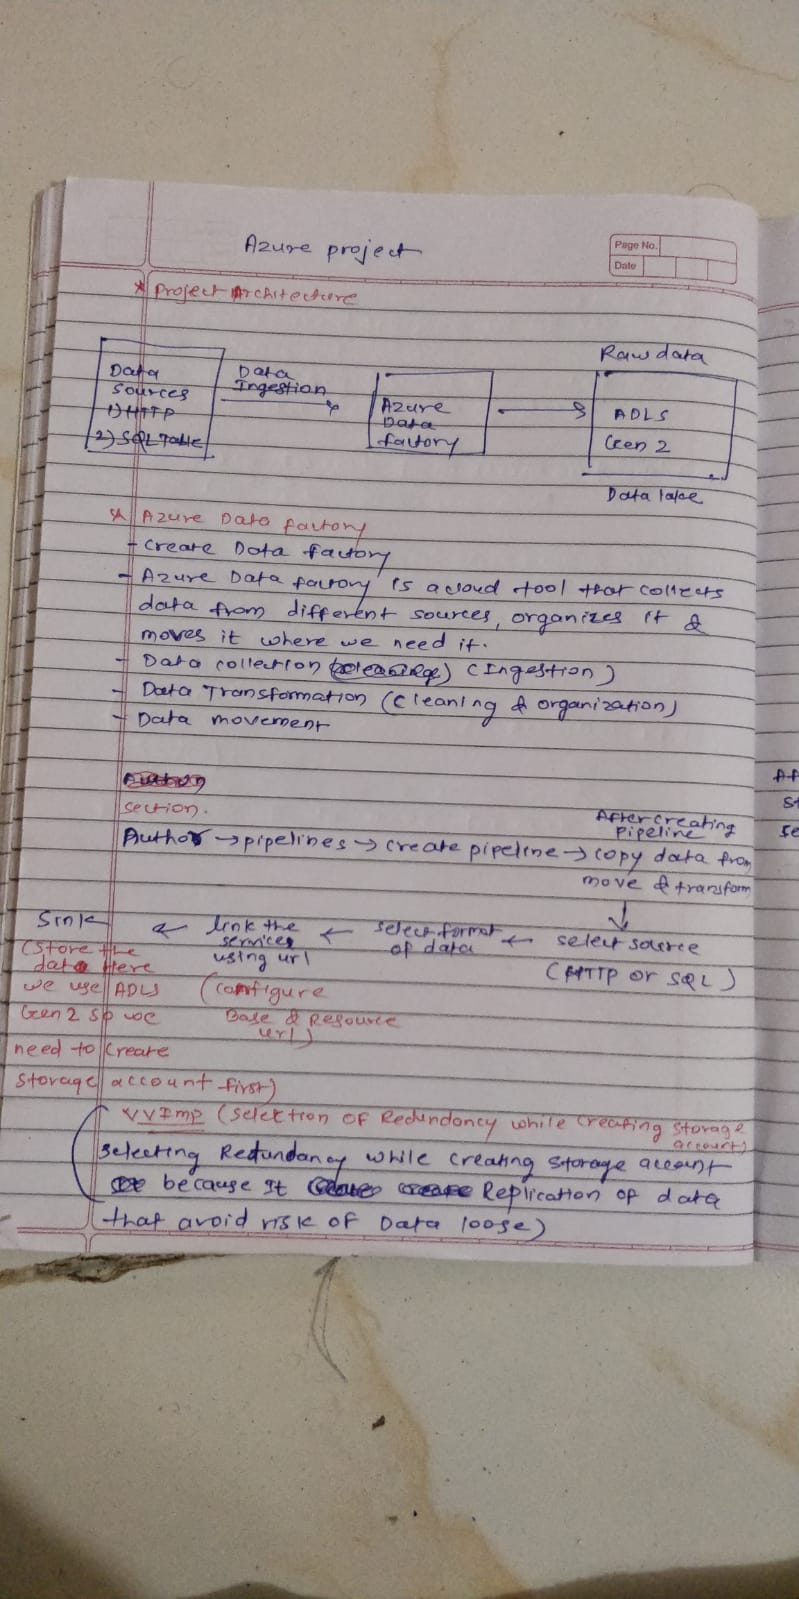 Azure project
Page No.
Date
* Project Architecture
Data
Sources
1) HTTP
2) SQL Table
Data
Ingestion
Azure
Data
factory
Raw data
ADLS
Gen 2
Data lake
* Azure Data factory
- Create Data factory
- Azure Data factory is a cloud tool that collects
data from different sources, organizes it &
moves it where we need it.
- Data collection (Ingestion)
- Data Transformation (cleaning & organization)
- Data movement
section.
Author → pipelines → create pipeline → copy data from
After creating
pipeline
move & transform
↓
select source
(HTTP or SQL)
← select format
of data
← link the
services
using url
(configure
Base & Resource
url)
← Sink
(Store the
data Here
we use ADLS
Gen 2 so we
need to create
storage account first)
VVImp (Selection of Redundancy while creating storage
account)
selecting Redundancy while creating storage account
because it Replication of data
that avoid risk of Data loose)
Af
St
Se